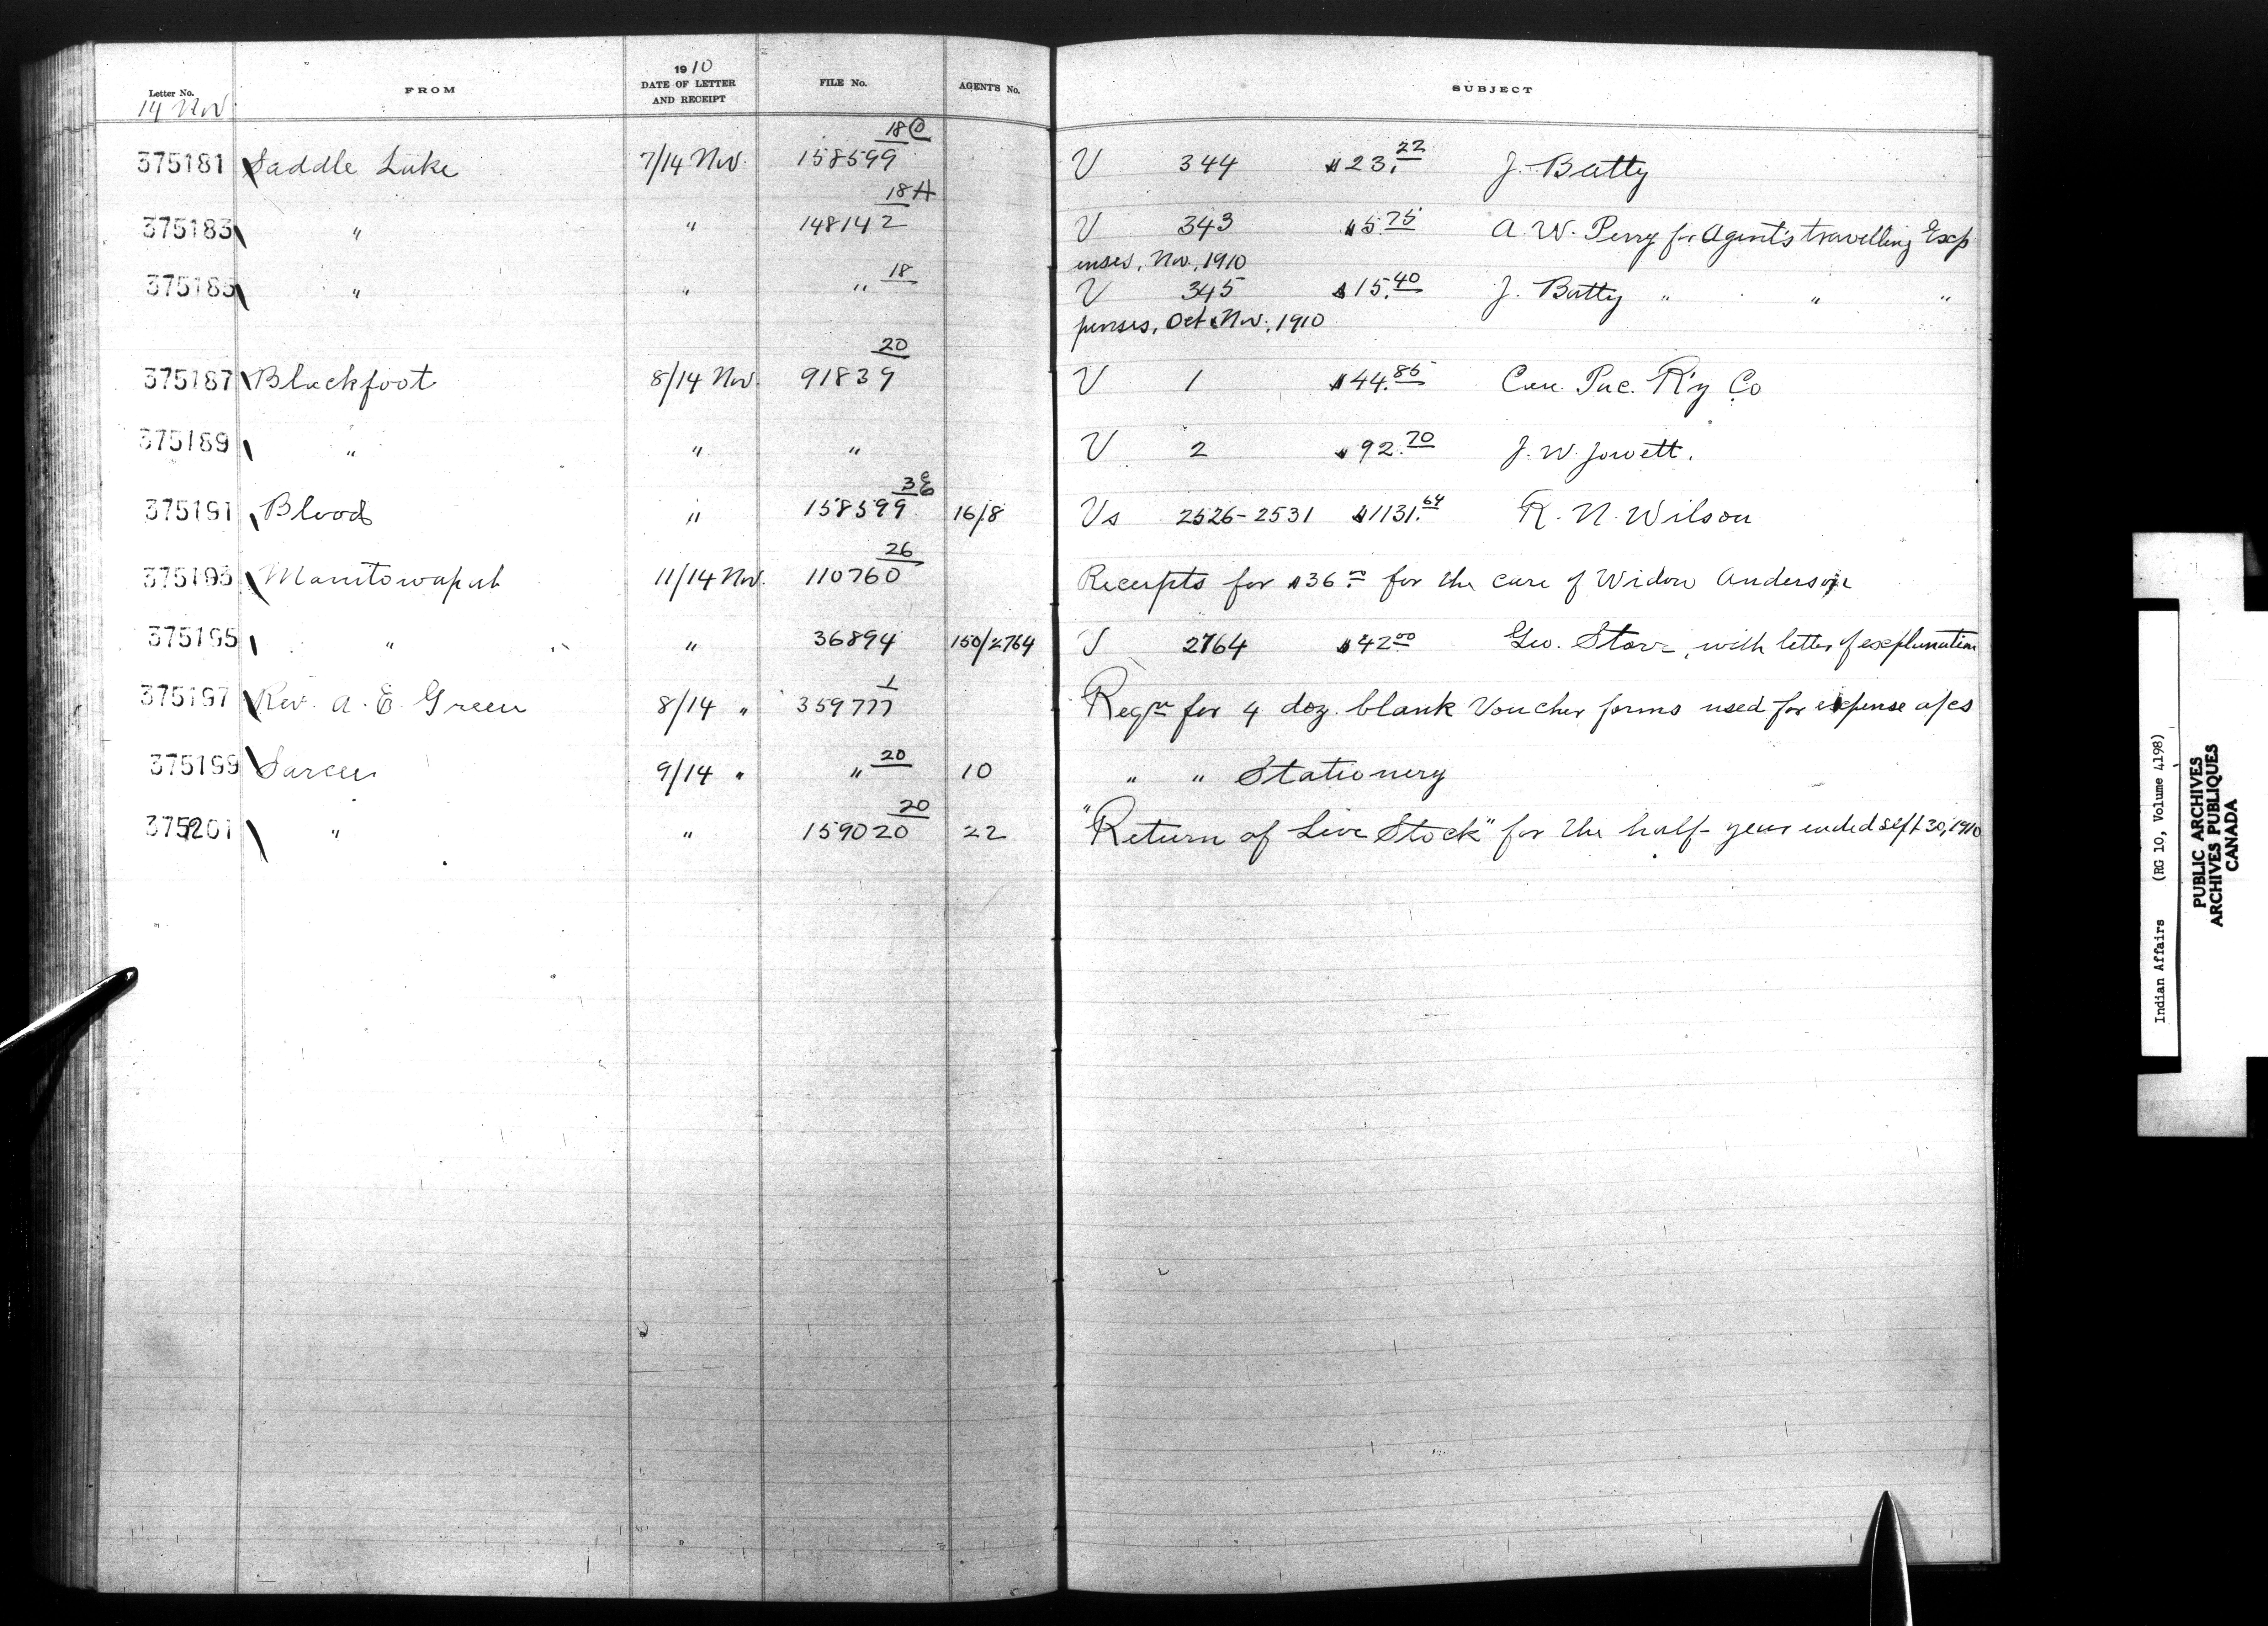 1910
Letter No. FROM DATE OF LETTER AND RECEIPT FILE No. AGENT'S No. SUBJECT
14 Nov.
18
375181 Saddle Lake 7/14 Nov. 158599 V 344 $23.22 J. Batty
18 H
375183 " " 148142 V 343 $5.75 A. W. Perry for Agent's travelling Exp
enses, Nov., 1910
18
375185 " " " V 345 $15.40 J. Batty " " "
penses, Oct & Nov., 1910
20
375187 Blackfoot 8/14 Nov. 91839 V 1 $44.85 Can. Pac. R'y Co
375189 " " " V 2 $92.70 J. W. Jowett.
3
375191 Blood " 158599 16/8 Vs 2526-2531 $1131.64 R. N. Wilson
26
375193 Manitowapah 11/14 Nov. 110760 Receipts for $36.00 for the care of Widow Anderson
375195 " " 36894 150/2764 V 2764 $42.00 Geo. Storr, with letter of explanation
1
375197 Rev. A. E. Green 8/14 " 359777 Reqn for 4 doz. blank Voucher forms used for expense a/cs
20
375199 Sarcee 9/14 " " 10 " " Stationery
20
375201 " " 159020 22 "Return of Live Stock" for the half-year ended Sept 30, 1910
Indian Affairs (RG 10, Volume 4198)
PUBLIC ARCHIVES
ARCHIVES PUBLIQUES
CANADA